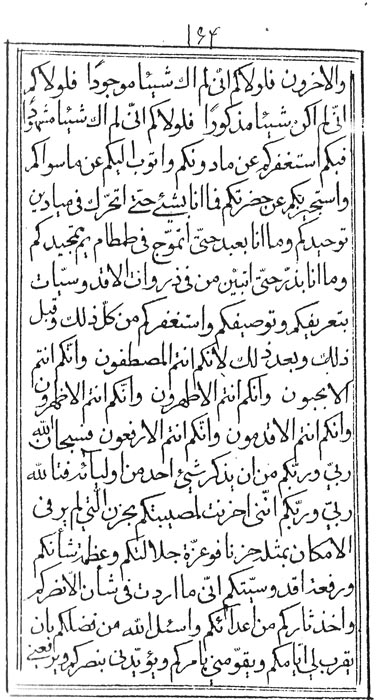 ١٩٤
والاخرون فلولاكم انى لم اك شيئا موجودًا فلولاكم
انى لم اكن شيئا مذكورًا فلولاكم انى لم اك شيئا مشهودًا
فبكم استغفركم عن مادونكم واتوب اليكم عن ماسواكم
واستجيركم عن حضرتكم فما انا بشئ حتى اتحرك فى ميادين
توحيدكم وما انا بعبد حتى اتموج فى طمطام تمجيدكم
وما انا بذر حتى اتبين من فى ذروات الاقدوسيات
بتعريفكم وتوصيفكم واستغفركم من كل ذلك وقبل
ذلك وبعد ذلك لانكم انتم المصطفون وانكم انتم
الانجبون وانكم انتم الاطهرون وانكم انتم الاظهرون
وانكم انتم الاقدمون وانكم انتم الارفعون فسبحان الله
ربى وربكم من ان يذكر شئ احد من اوليائه فنالله
ربى وربكم اننى احزنت لمصيبتكم بحزن التى لم ير فى
الامكان بمثله حزنا فوعزة جلالتكم وعظمة شأنكم
ورفعة اقدوسيتكم انى ما اردت فى شأن الا نصركم
واخذ ثاركم من اعدائكم واسئل الله من فضلكم بان
يقرب لى ايامكم ويقومنى بامركم ويؤيدنى بنصركم ويرفعنى